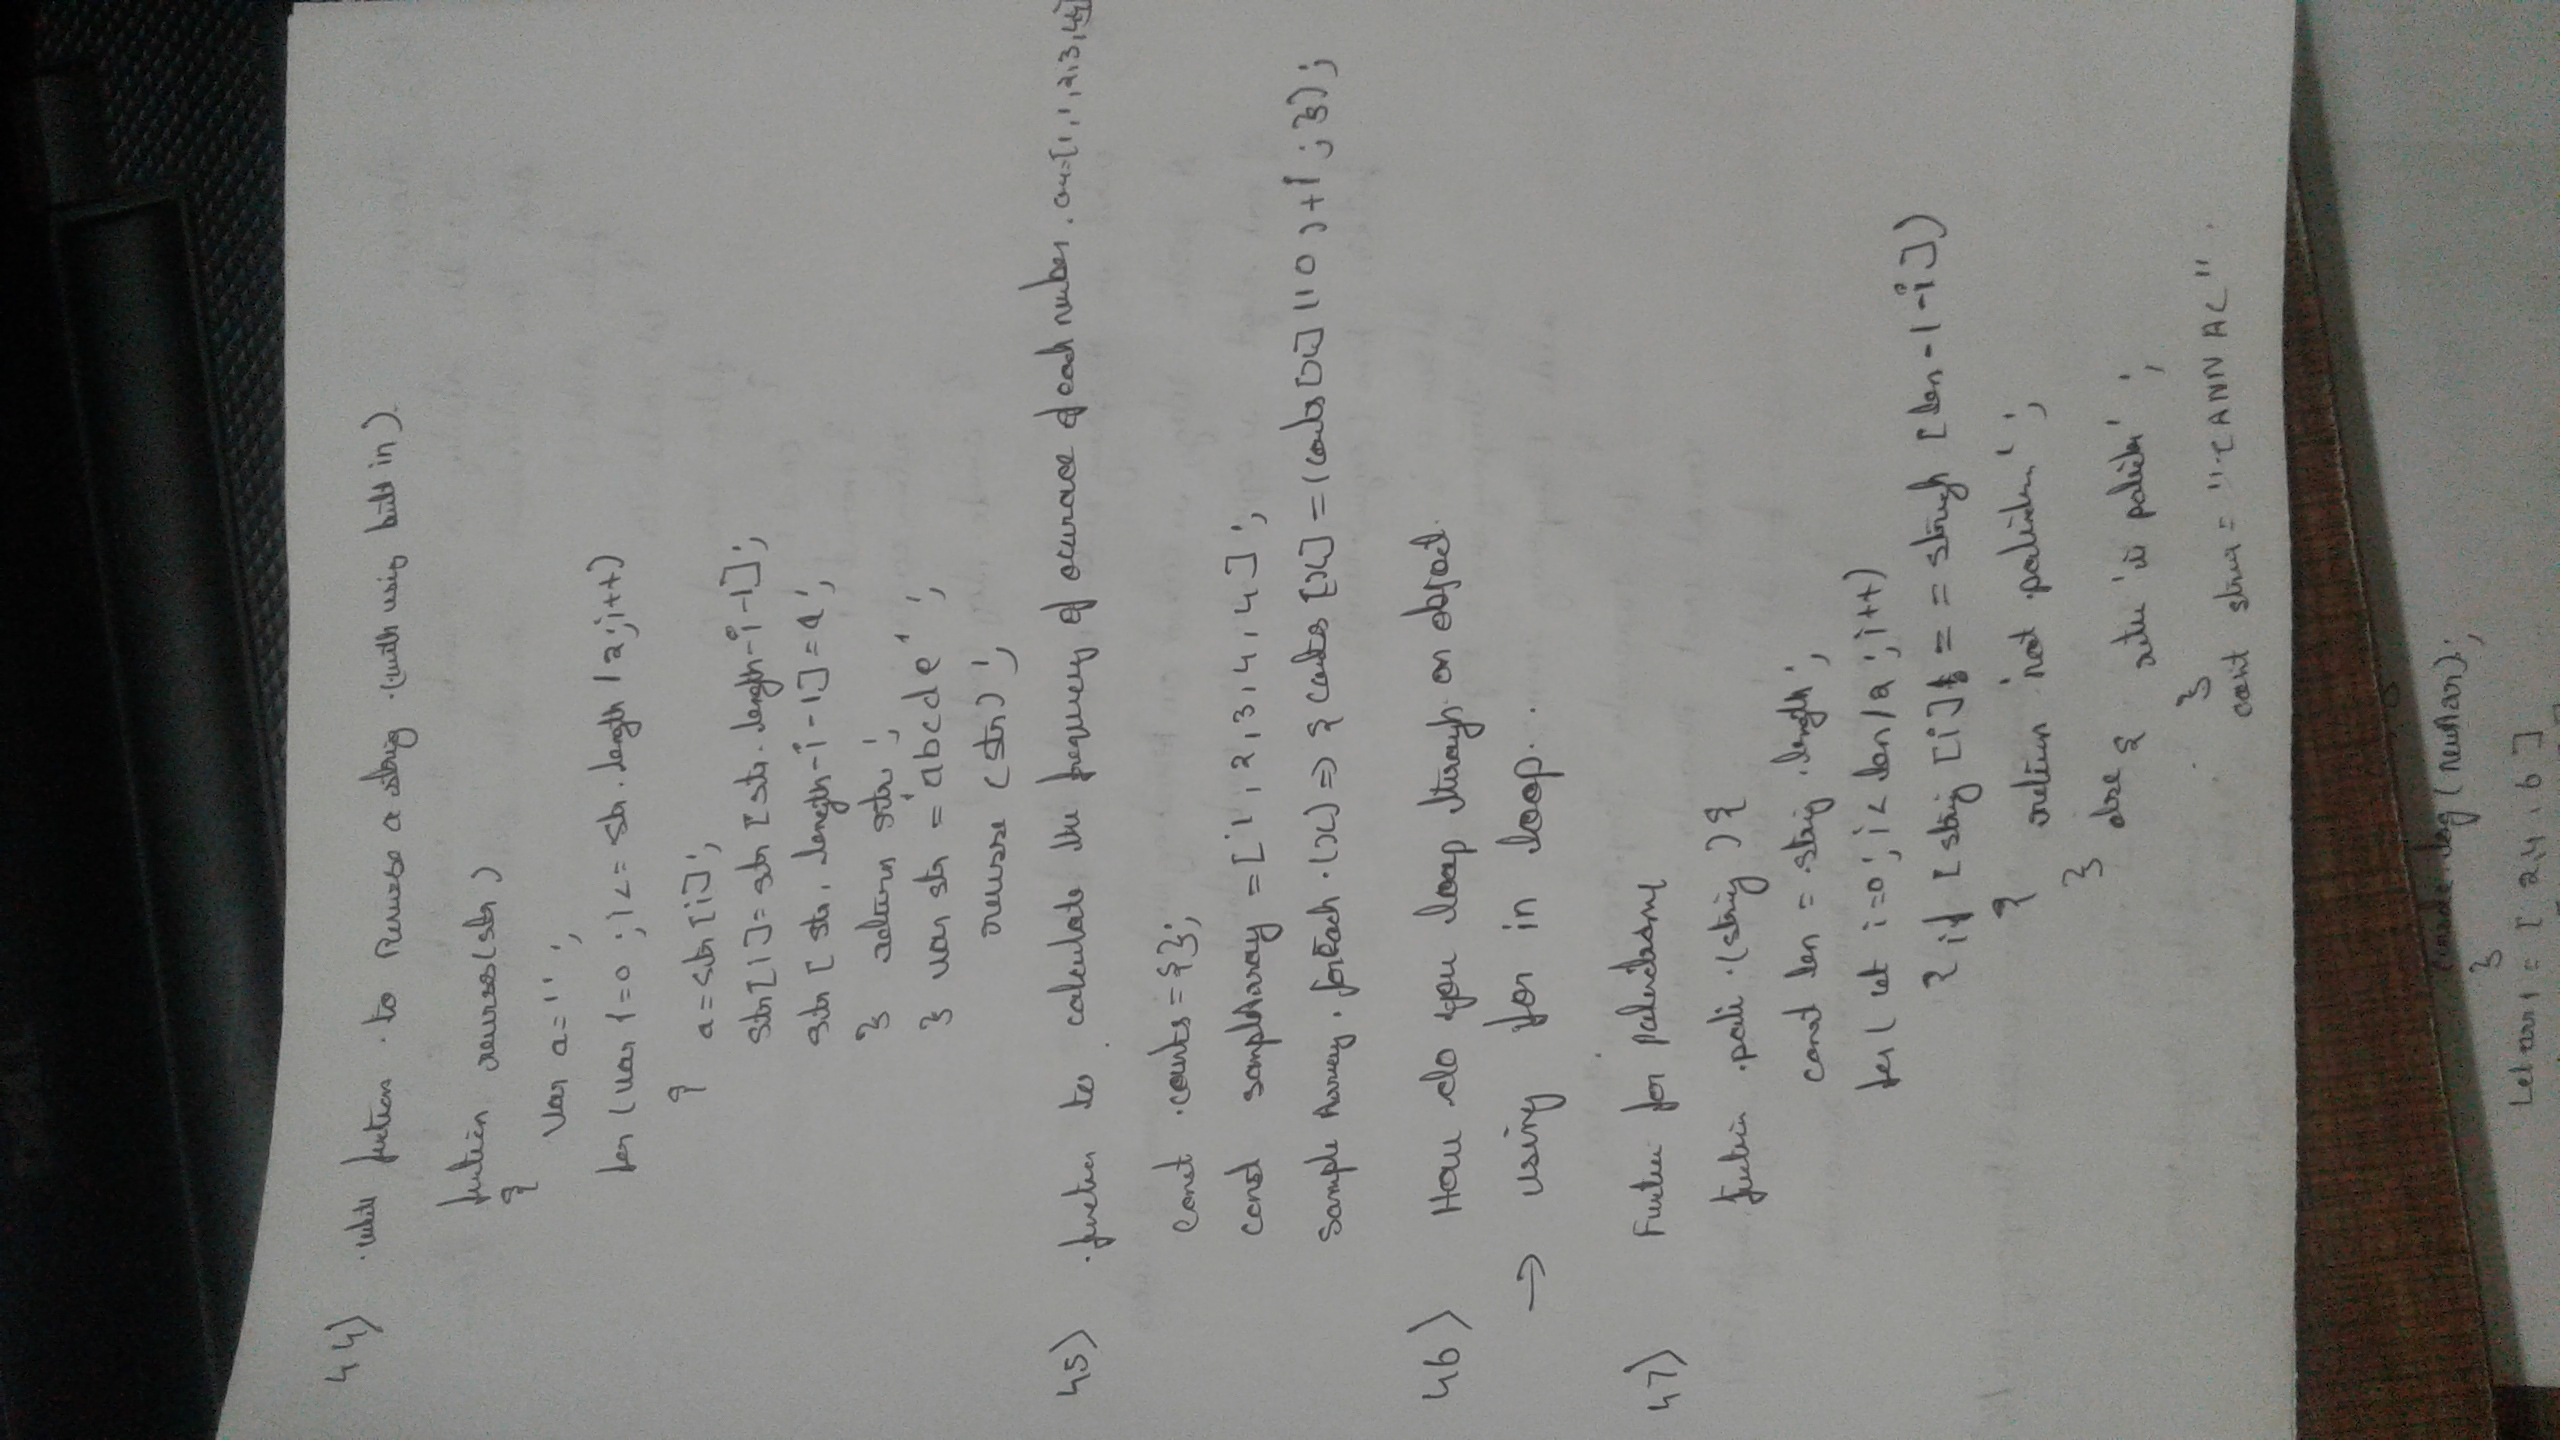 44) write function to Reverse a string (with using built in).
function reverse(str)
{
var a='';
for (var i=0; i<= str.length/2; i++)
{ a=str[i];
str[i]=str[str.length-i-1];
str[str.length-i-1]=a;
} return str;
} var str = 'abcde';
reverse (str);
45) function to calculate the frequency of occurace of each number. arr=[1,1,2,3,44]
const counts={};
const sampleArray =[1,2,3,4,4];
Sample Array.forEach.(x)=> { counts [x] =(counts[x] || 0)+1; });
46) How do you loop through an object.
→ using for in loop..
47) Function for palindrome
function pali (string){
const len = string.length;
for( let i=0; i< len/2; i++)
{ if [string [i] !== string [len-1-i])
{ return 'not palindrom';
} else { return 'is palindr';
}
const = "CANNAC".
console log (newArr);
}
Let arr1 = [ 2,4,6]